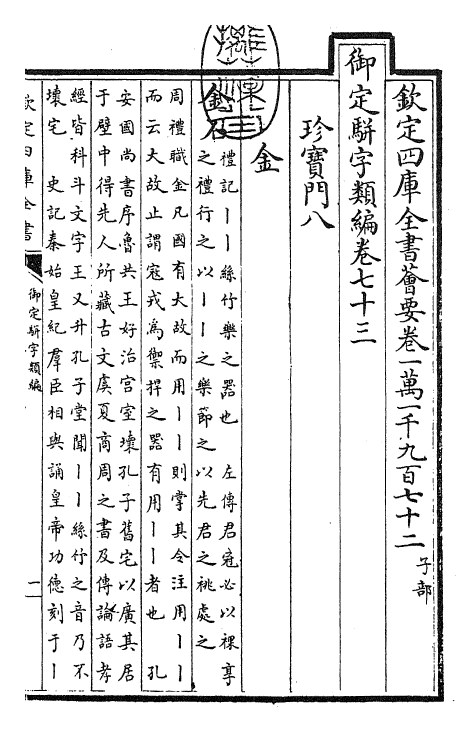 欽定四庫全書薈要卷一萬一千九百七十二 子部
御定駢字類編卷七十三
珍寶門八
金
金石 禮記丨丨絲竹樂之器也 左傳君冠必以祼享
之禮行之以丨丨之樂節之以先君之祧處之
周禮職金凡國有大故而用丨丨則掌其令注用丨丨
而云大故止謂寇戎為禦捍之器有用丨丨者也 孔
安國尚書序魯共王好治宮室壞孔子舊宅以廣其居
于壁中得先人所藏古文虞夏商周之書及傳論語孝
經皆科斗文字王又升孔子堂聞丨丨絲竹之音乃不
壞宅 史記秦始皇紀羣臣相與誦皇帝功德刻于丨
欽定四庫全書
御定駢字類編
一